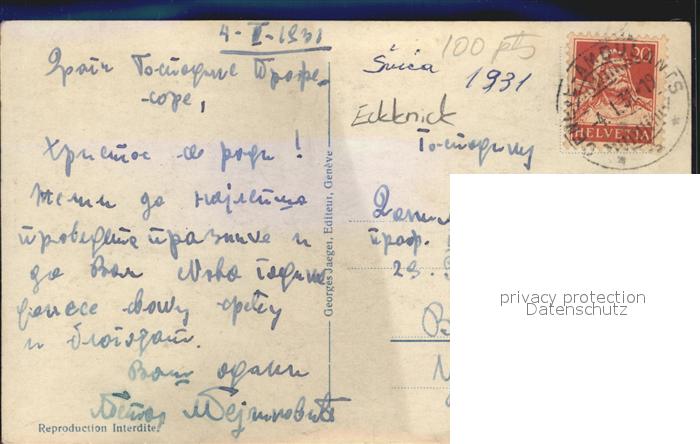 4-I-1931
Драги Господине Профе-
соре,
Христос се роди!
Желим да најлепше
проведете празнике и
да Вам Нова Година
донесе сваку срећу
и благодат.
Ваш одани
Петар
Reproduction Interdite.
Georges Jaeger, Editeur, Genève
100 pts
Švica 1931
Господину
проф.
23.
20
HELVETIA
privacy protection
Datenschutz